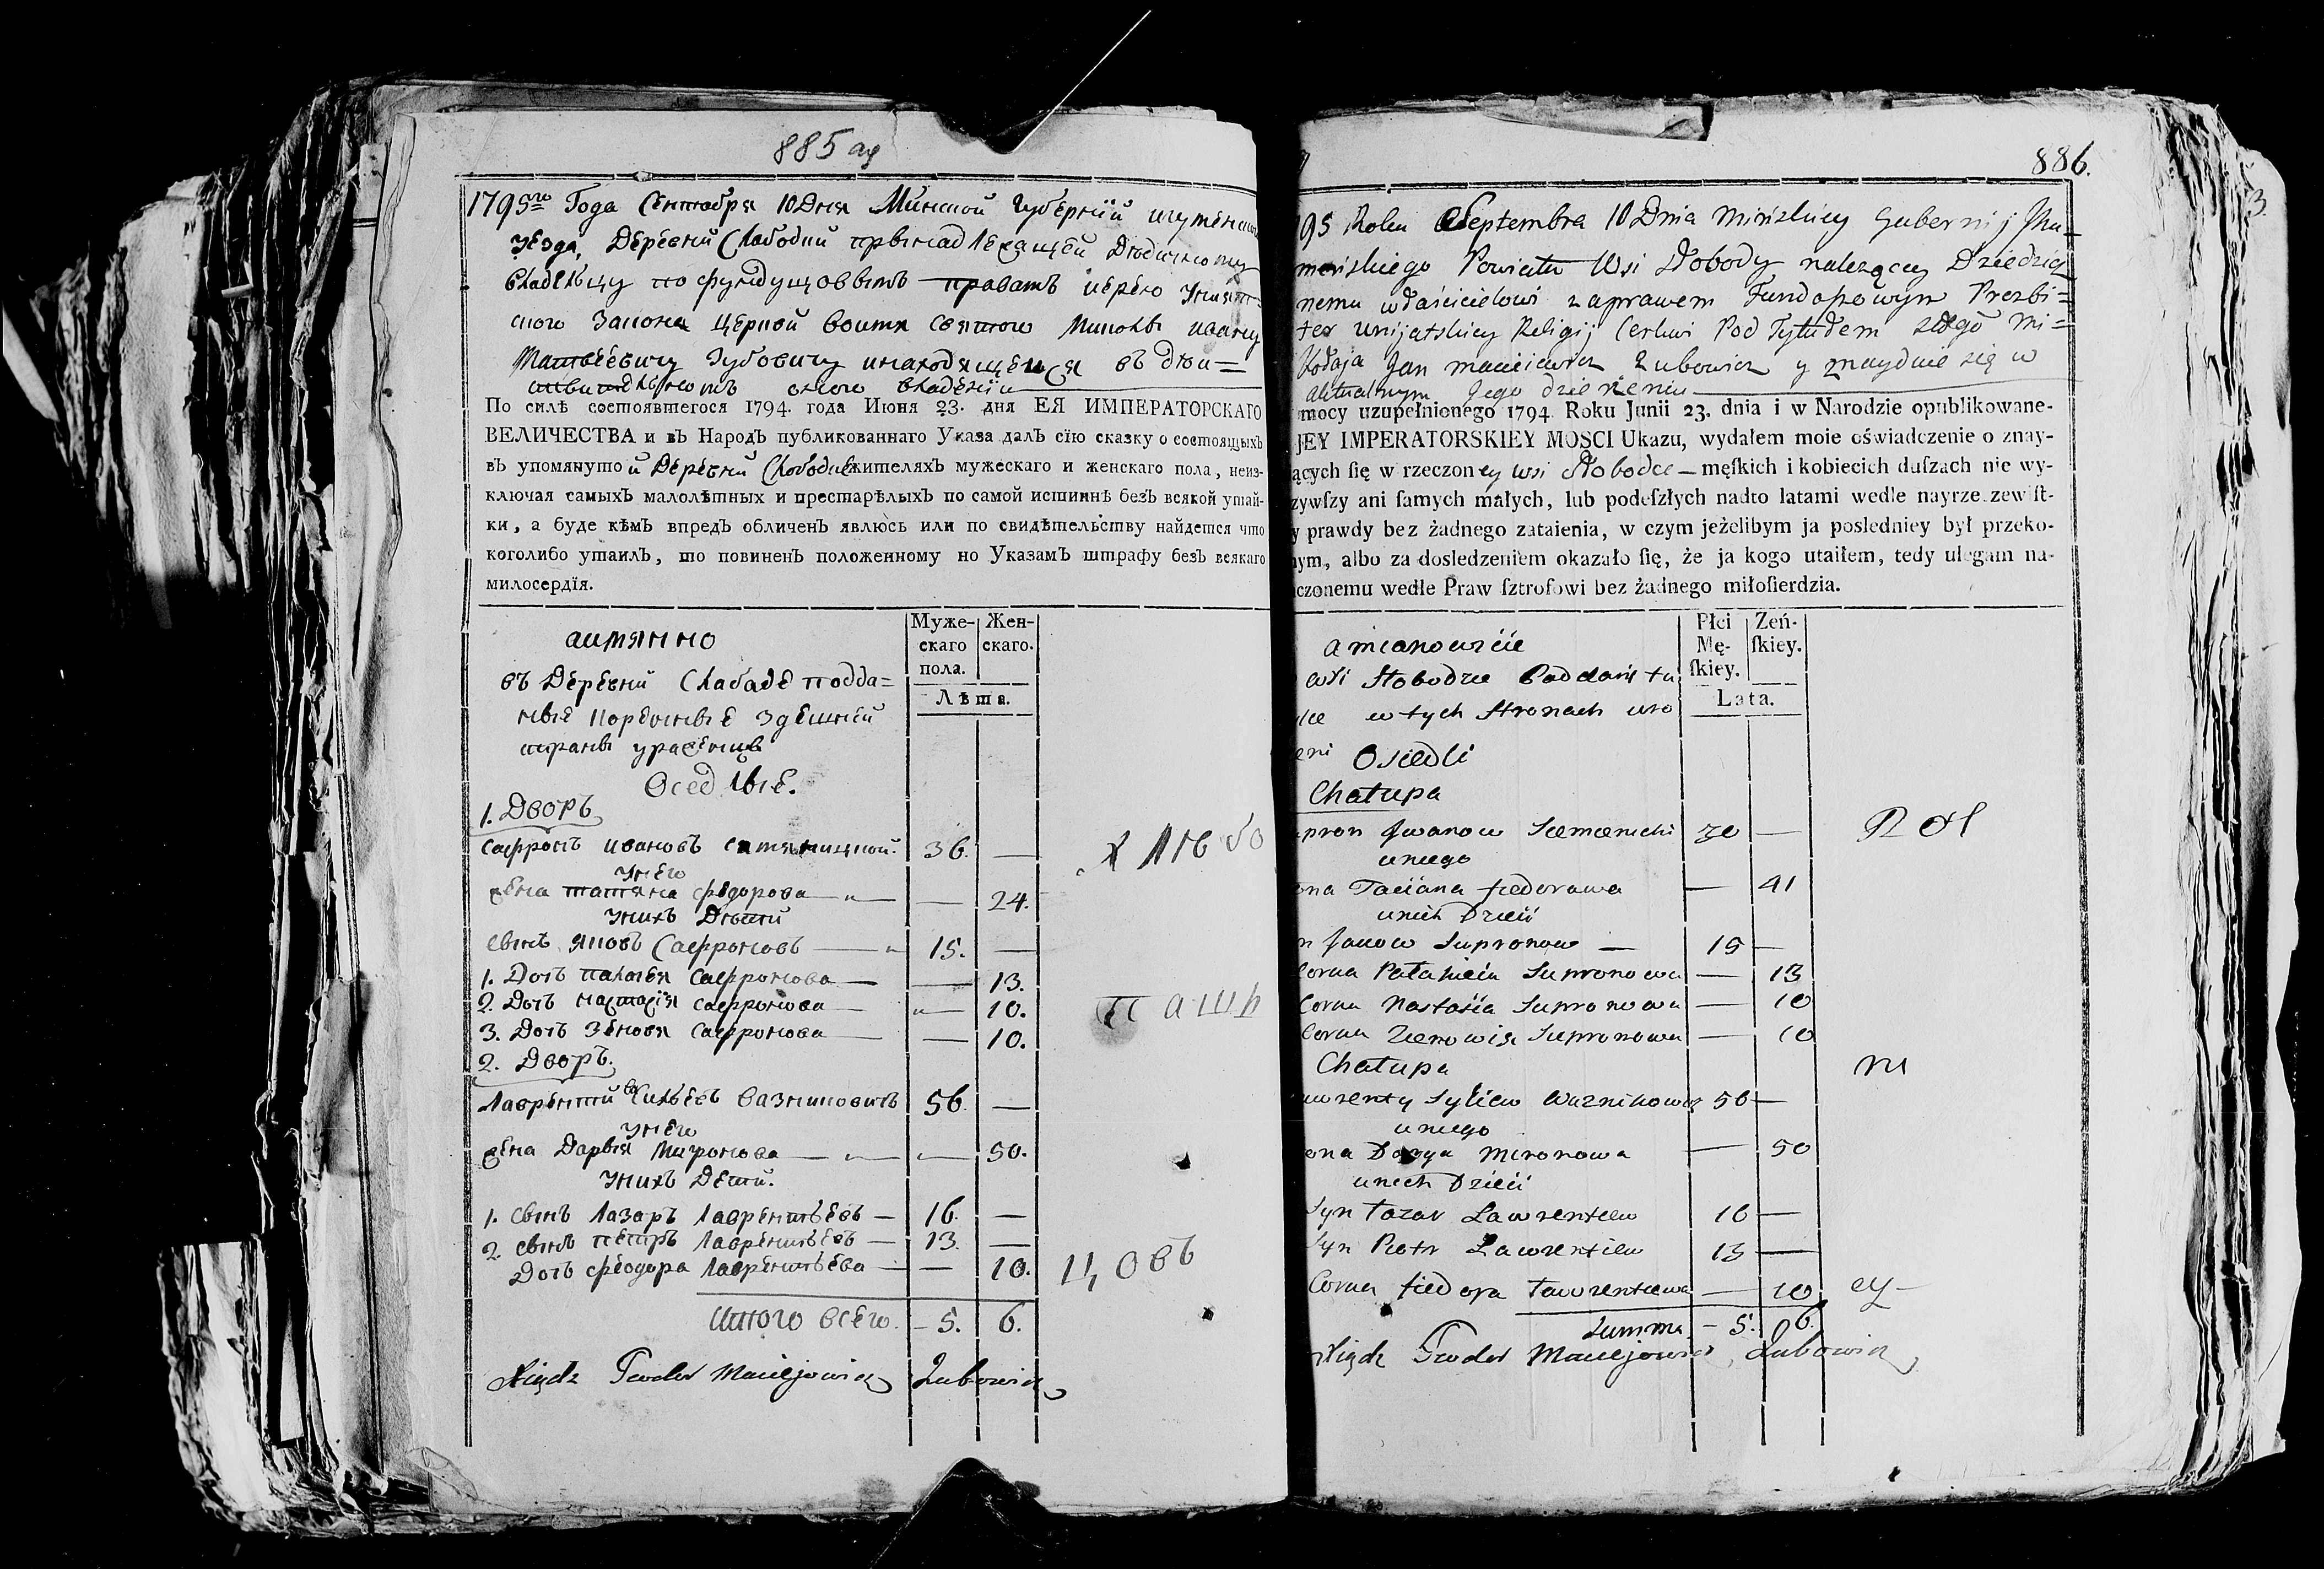 885 ад
1795го Года Сентября 10 Дня Минской Губерніи игуменского
уезда, Деревни Слободки принадлежащей Дедичному
Владельцу по фундушовымъ правамъ иерею Униятского
Закона Церкви Свя­таго Миколы Ивану
Матвеевичу Зубовичу и находящейся въ
оного владении
По силѣ состоявшегося 1794. года Июня 23. дня ЕЯ ИМПЕРАТОРСКАГО
ВЕЛИЧЕСТВА и въ Народъ публикованнаго Указа далъ сїю сказку о состоящыхъ
въ упомянутой Деревни Слободке жителяхъ мужескаго и женскаго пола, неиз-
ключая самыхъ малолѣтных и престарѣлыхъ по самой истиннѣ безъ всякой утай-
ки, а буде кѣмъ впредъ обличенъ явлюсь или по свидѣтельству найдется что
коголибо утаилъ, то повиненъ положенному по Указамъ штрафу безъ всякаго
милосердїя.
аимянно
Муже-скаго пола. Жен-скаго.
Лѣта.
въ Деревни Слабаде подда=
ные Коренные Здешней
страны уроженцы
Оседлые.
1. Дворъ
Сафронъ Ивановъ 36. —
У него
жена татяна федорова — — 24.
У нихъ Дети
сынъ яковъ Сафроновъ — 15. —
1. Дочь палагея сафронова — — 13.
2. Дочь настасїя сафронова — — 10.
3. Дочь зеновя сафронова — — 10.
2. Дворъ.
Лаврентий Васильевъ Вазниковичъ 56. —
У него
жена Дарья Миронова — — 50.
У нихъ Дети.
1. сынъ Лазаръ Лаврентьевъ — 16. —
2. сынъ петръ Лаврентьевъ — 13. —
Дочь феодора Лаврентьева — — 10.
Итого всего. — 5. 6.
Xiądz Teodor Maciejowicz Zubowicz
хлѣбо
паш
цовъ
886.
95 Roku Septembra 10 Dnia Minskiey Gubernij Ihu=
menskiego Powiatu Wsi Słobody należącey Dziedzicz
nemu właścicielowi z aprawem Funduszowym Prezbi=
ter Unijatskiey Religij Cerkwi Pod Tytułem Sgo Mi=
kołaja Jan Maciiewicz Zubowicz y znayduie się w
aktualnym Jego dzierzeniu
mocy uzupełnionego 1794. Roku Junii 23. dnia i w Narodzie opublikowane-
JEY IMPERATORSKIEY MOSCI Ukazu, wydałem moie oświadczenie o znay-
ących ſię w rzeczoney wsi Słobodce — męſkich i kobiecich duſzach nie wy-
zywſzy ani ſamych małych, lub podeſzłych nadto latami wedle nayrzeczewiſt-
y prawdy bez żadnego zataienia, w czym jeżelibym ja posledniey był przeko-
nym, albo za dosledzeniem okazało ſię, że ja kogo utaiłem, tedy ulegam na-
czonemu wedle Praw ſztrofowi bez żadnego miłoſierdzia.
a mianowicie
Płci Mę-ſkiey. Żeń-ſkiey.
Lata.
wsi Słobodce Poddani tu
w tych Stronach uro
eni Osiedli
Chałupa
upron Jwanow 30 —
u niego
ona Taciana fiedorawa — 41
u nich Dzieci
n Jakow Supronow — 15 —
Corka Pałahieia Supronowa — 13
Corka Nastasiia Supronowa — 10
Corka Zienowia Supronowa — 10
Chałupa
awrenty Syliew Waznikowicz 56 —
u niego
ona Darya Mironowa — 50
u nich Dzieci
Syn Łazar Lawrentiew 16 —
Syn Piotr Lawrentiew 13 —
Corka fiedora Lawrentiewa — 10
Summa — 5. 6.
Xiądz Teodor Maciejowicz Zubowicz
Rol
ni
cy